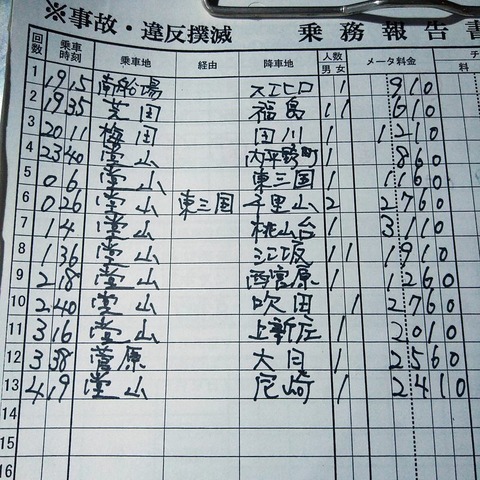 ※事故・違反撲滅 乗務報告書
回数 乗車時刻 乗車地 経由 降車地 人数 男 女 メータ料金 料 チ
1 1915 南船場 スエヒロ 1 910
2 1935 芝田 福島 1 1 610
3 2011 梅田 田川 1 1210
4 2340 堂山 大平野町 1 860
5 0 6 堂山 東三国 1 1160
6 0 26 堂山 東三国 千里山 2 2760
7 1 4 堂山 桃山台 1 3110
8 1 36 堂山 江坂 1 1 1910
9 2 18 堂山 西宮原 1 1260
10 2 40 堂山 吹田 1 2760
11 3 16 堂山 上新庄 1 2010
12 3 38 菅原 大日 1 2560
13 4 19 堂山 尼崎 1 2410
14
15
16